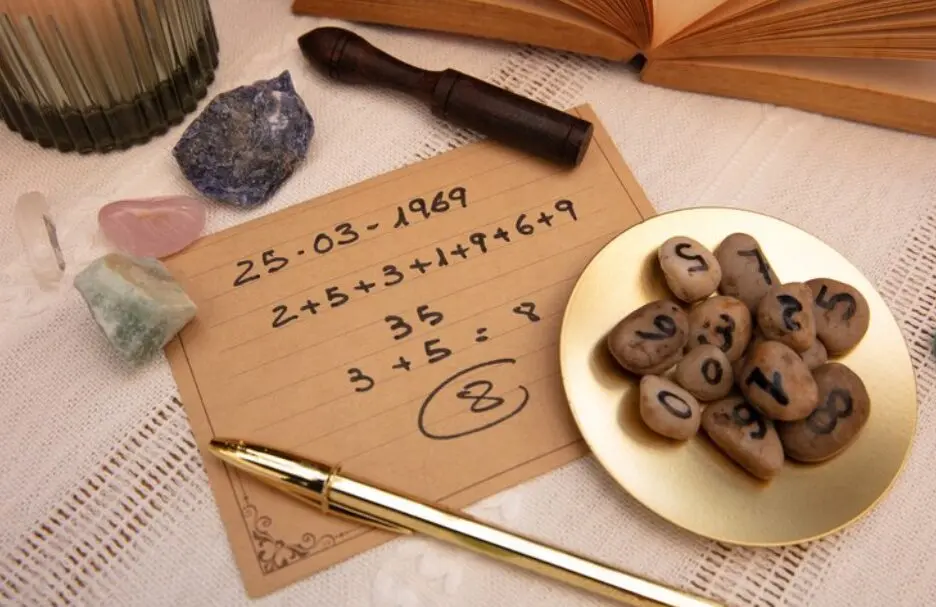 25.03-1969
2+5+3+1+9+6+9
35
3+5=8
8
5
7
2
5
6
3
0
1
0
9
8